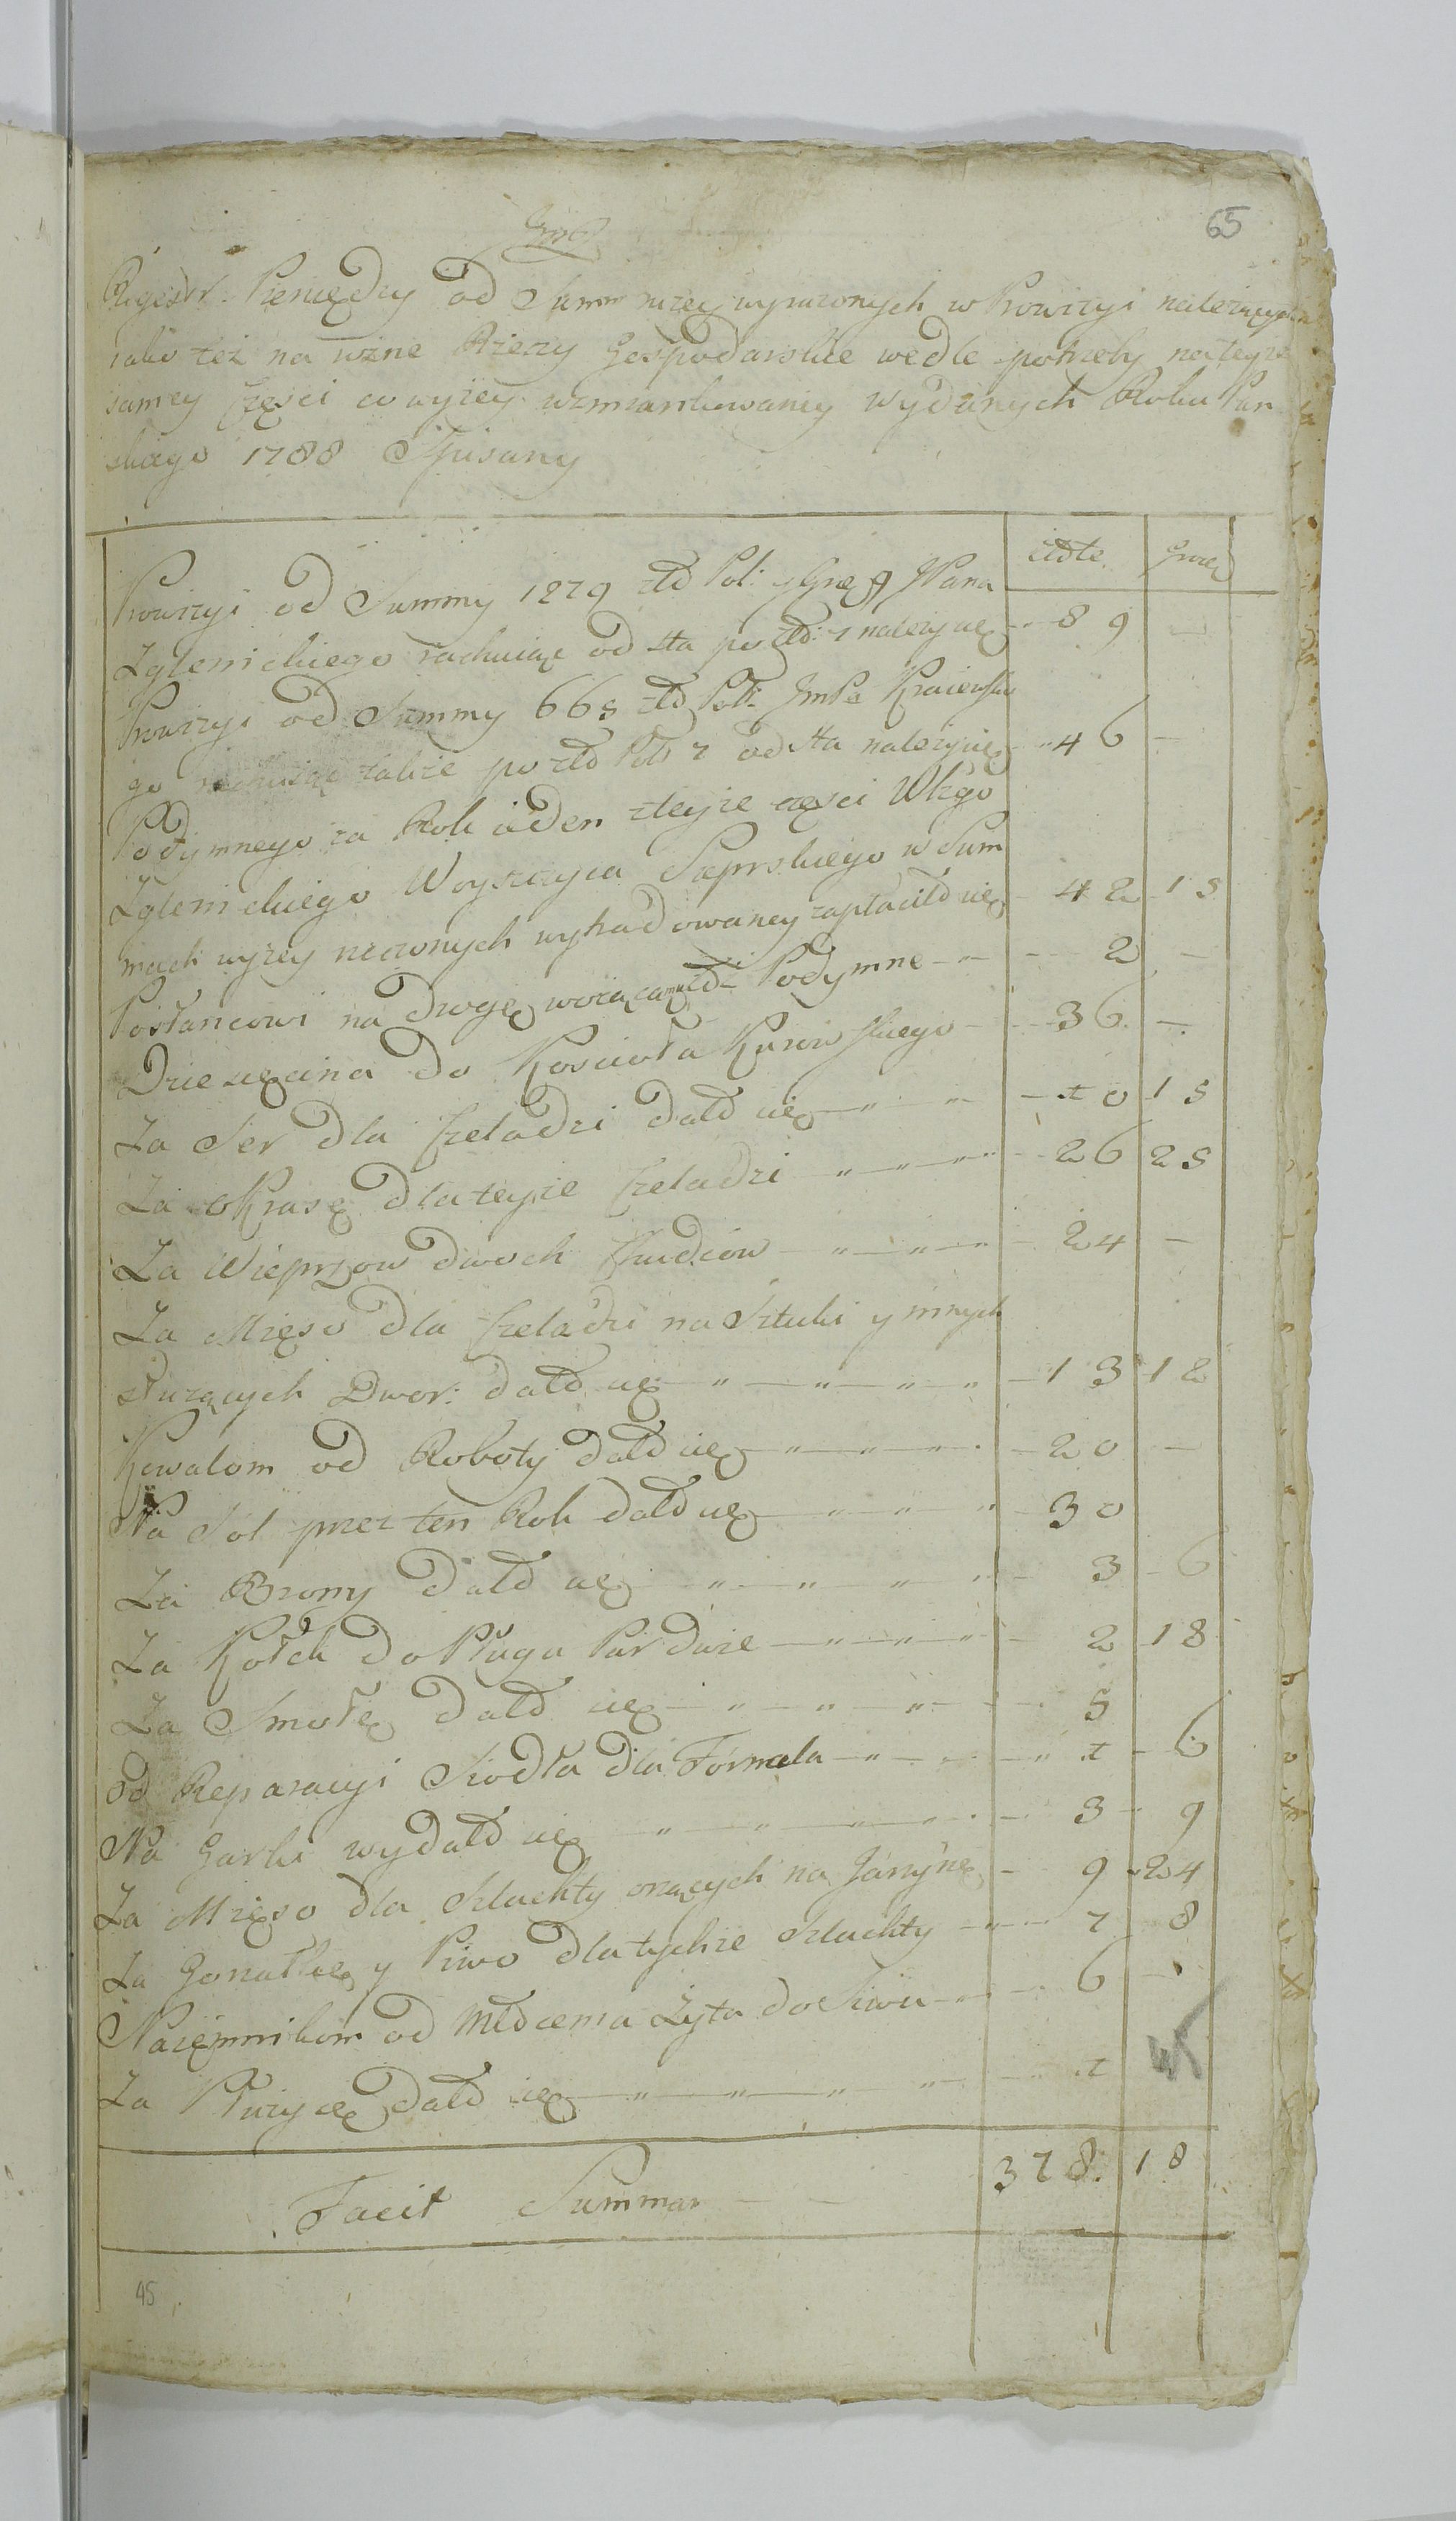 65
Regestr Pieniędzy od Summ niżey wyrazonych w Prowizyi należących
iako też na rożne Rzeczy Gospodarskie wedle potrzeby na teyże
samey części co wyżey wzmiankowaney wydanych Roku Pań
skiego 1788 Spisany
Złote Grosz
Prowizyi od Summy 1279 złł Pol: y Gro 9 JPana
Zglenickiego rachuiąc od sta po złł: 7 należy się 89 —
Prowizyi od Summy 665 złł Pol: JmPa Kraiewskie
go rachuiąc także po złł Pols 7 od sta należy się 46 —
Podymnego za Rok ieden z teyże części Włzgo
Zglenickiego Woyszczyca Sieprskiego w Sum
mach wyżey rzeczonych wyhadowaney zapłaciłо się 42 15
Posłańcowi na drogę wożącemu Podymne 2 —
Dziesięcina do Kościoła Kurow skiego 36 —
Za Ser dla Czeladzi dało się 10 15
Za okrasę dla teyże Czeladzi 26 25
Za Wieprzow dwoch Chudcow 24 —
Za Mięso dla Czeladzi na Sztuki y innych
służących Dwor: dało się 13 12
Kowalom od Roboty dało się 20 —
Na Sol przez ten Rok dało się 30
Za Brony dało się 3 6
Za Kołek do Pługa Par dwie 2 18
Za Smołę dało się 5
od Reparacyi Siodła dla Fornala 1 6
Na Garki wydało się 3 9
Za Mięso dla Szlachty orzących na Jarzynę 9 24
Za Gorzałkę y Piwo dla tychże Szlachty 7 8
Naiemnikom od Młocenia Żyta do Siewu 6 —
Za Płużycę dało się 1
45
Facit Summa 378 18
45